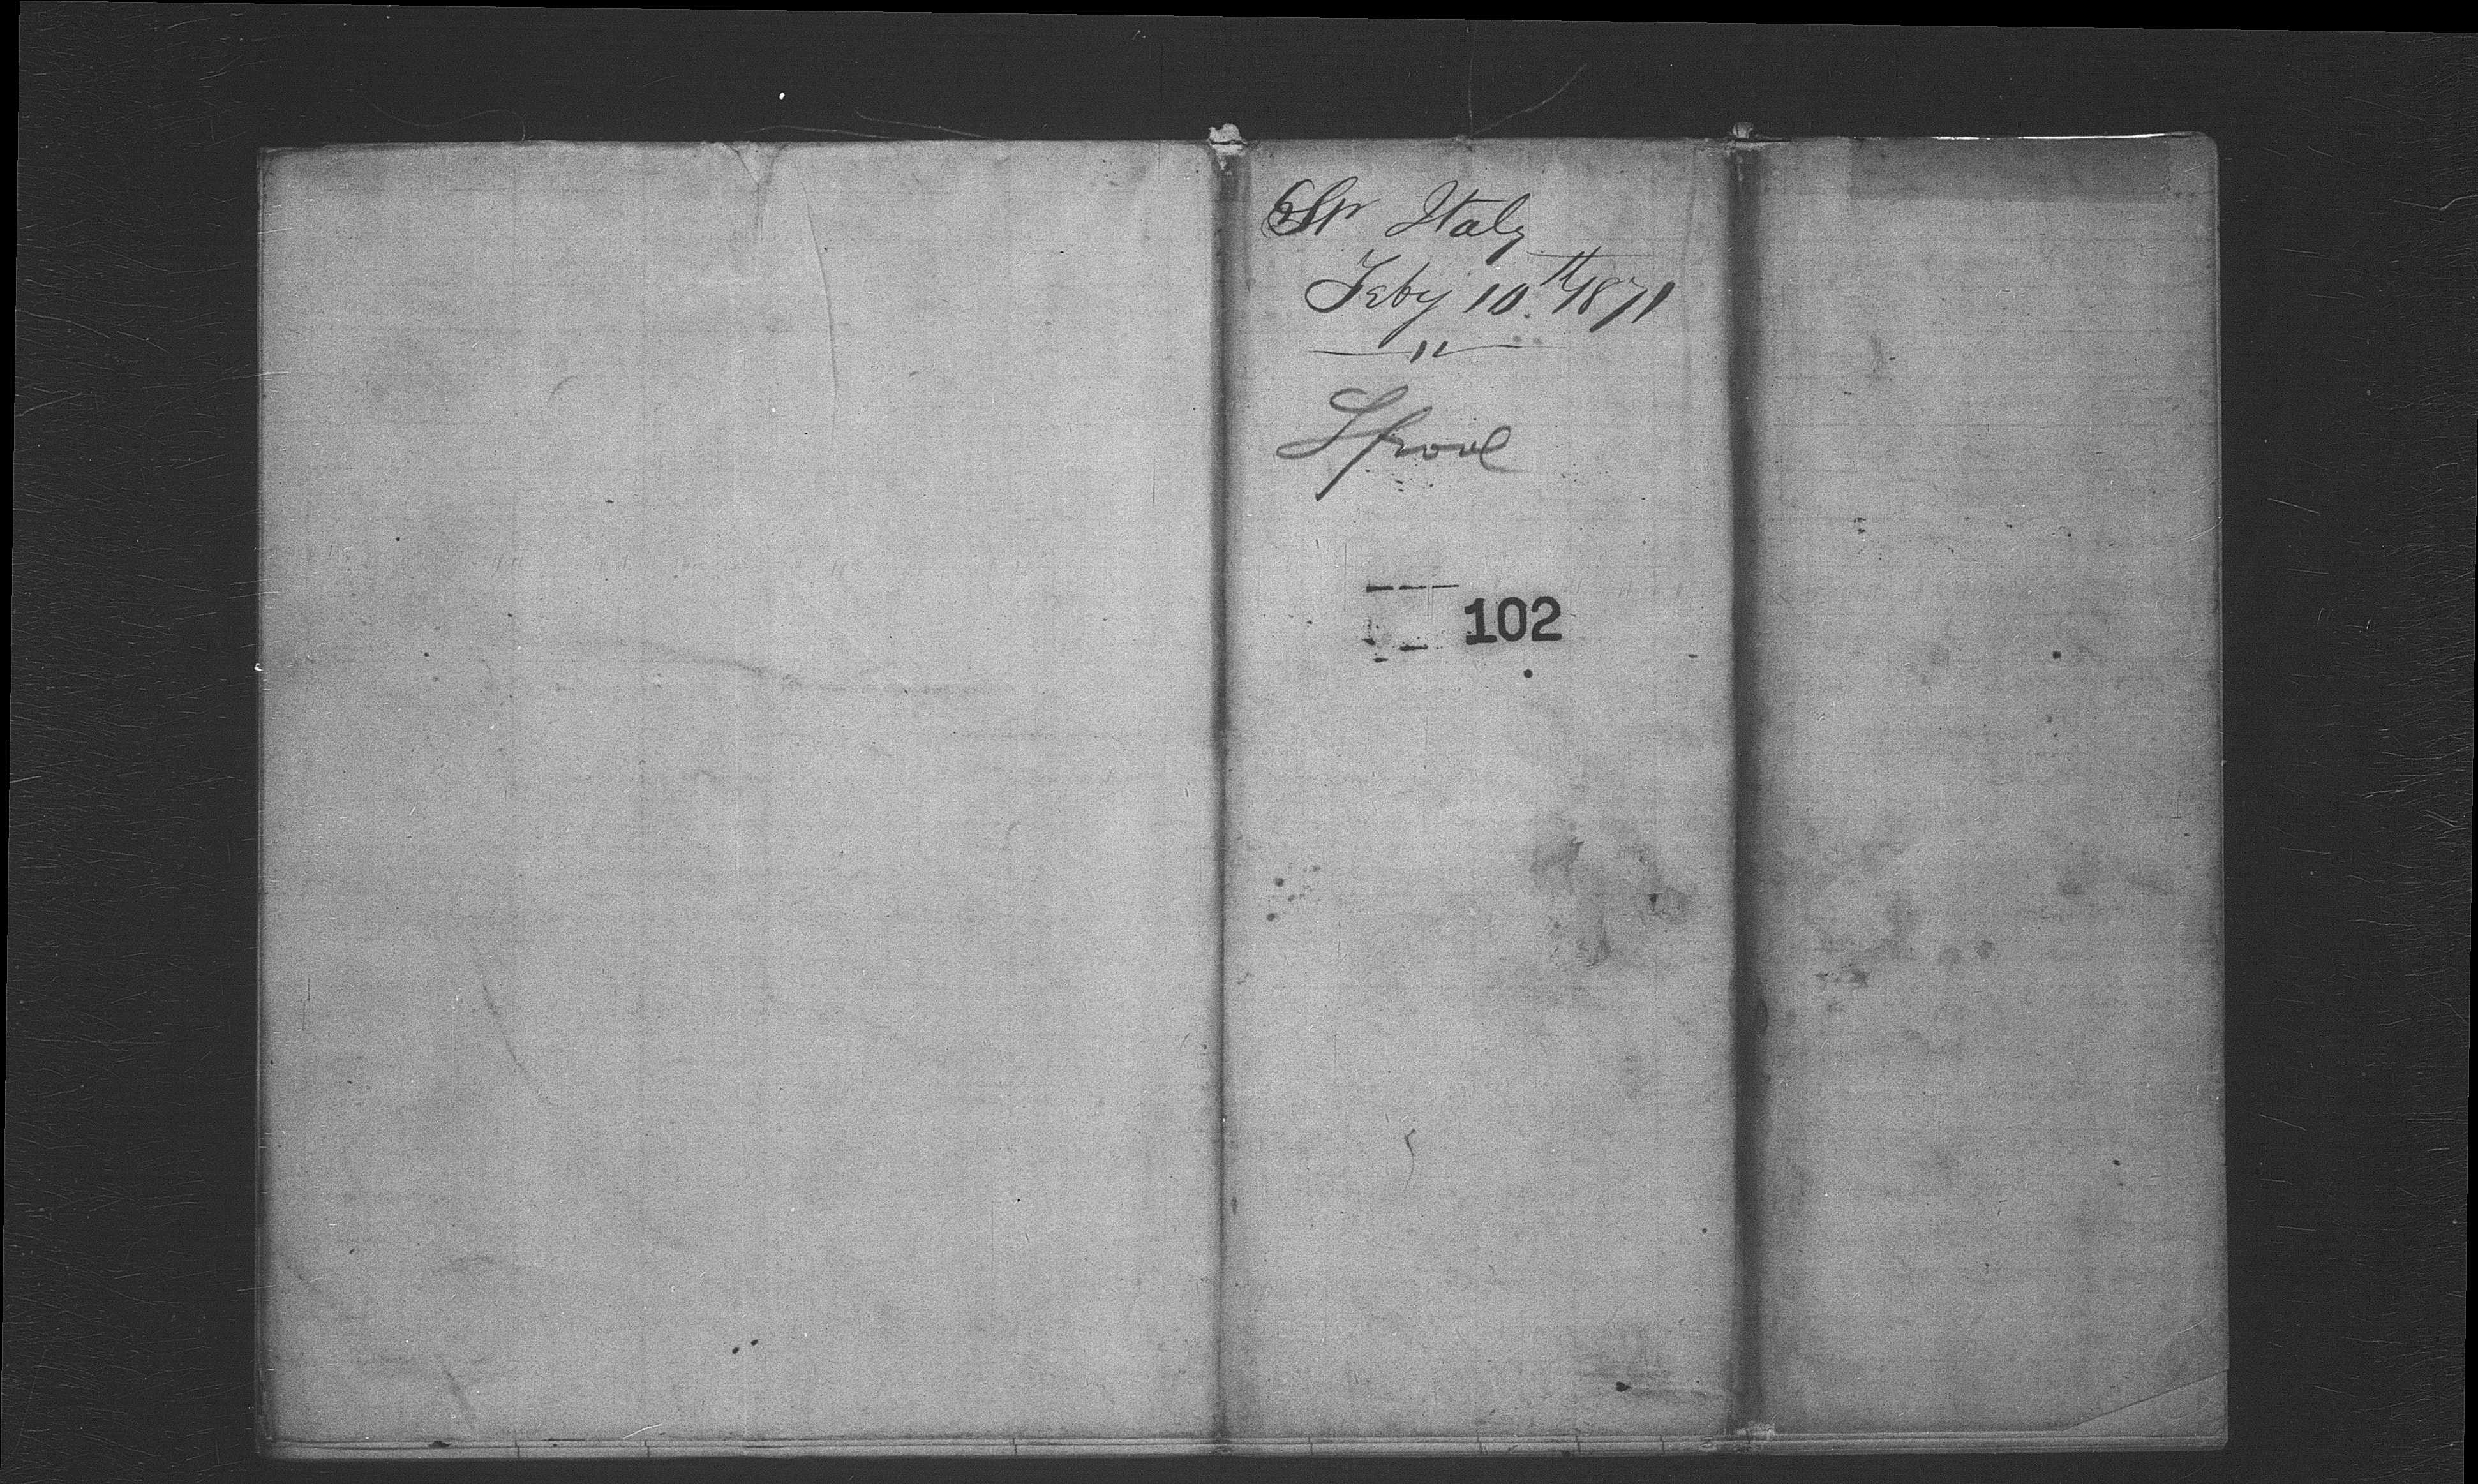 SSr Italy
Feby 10th 1871
"
Lpool
102